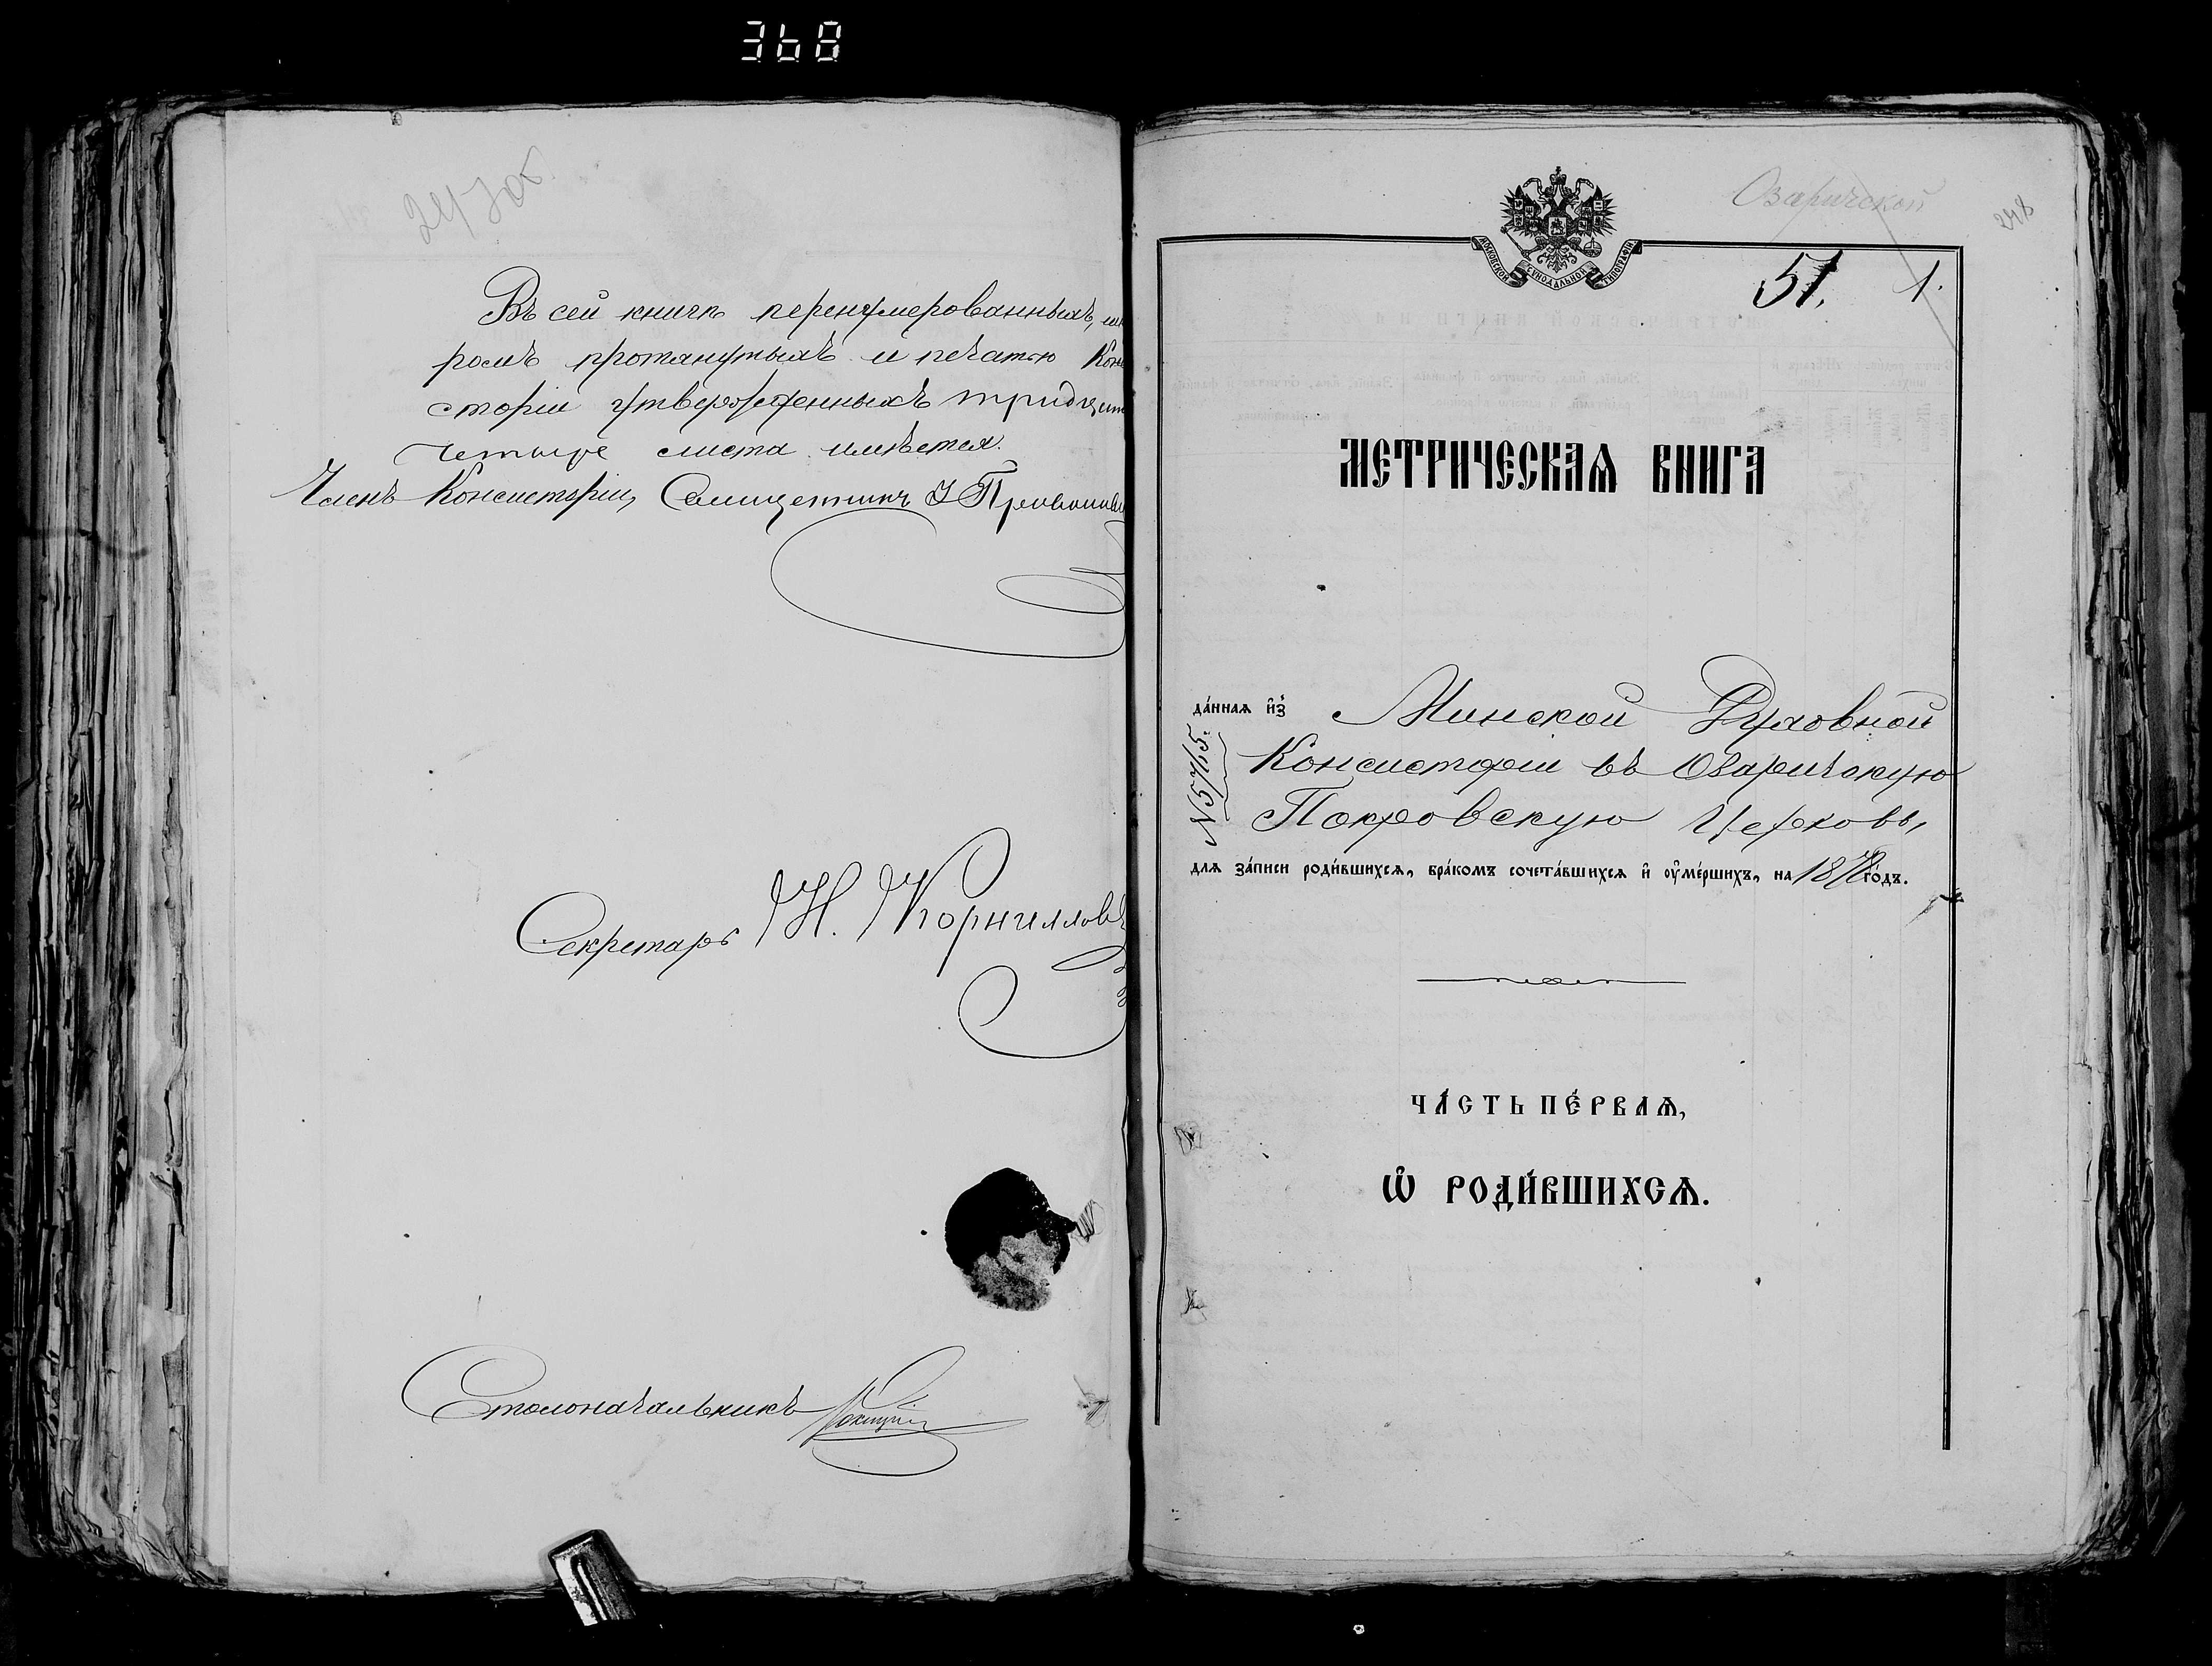 368
247 об.
Въ сей книгѣ перенумерованныхъ, шну
ромъ протянутыхъ и печатью Конси
сторіи утвержденныхъ тридцать
четыре листа имѣется.
Членъ Консисторіи, Священникъ
Секретарь Н. Корниловъ
Столоначальникъ
Озаричской
248
МОСКОВСКОЙ СѴНОДАЛЬНОЙ ТИПОГРАФІИ
51. 1.
МЕТРИЧЕСКАѦ КНИГА
да́ннаѧ и҆з̾ Минской Духовной
Консисторіи въ Озаричскую
Покровскую Церковь,
№ 5715.
длѧ за́писи роди́вшихсѧ, бра́комъ сочета́вшихсѧ и҆ ᲂу҆ме́ршихъ, на 1878 го́дъ.
ЧА́СТЬ ПЕ́РВАѦ,
Ѡ҆ РОДИ́ВШИХСѦ.